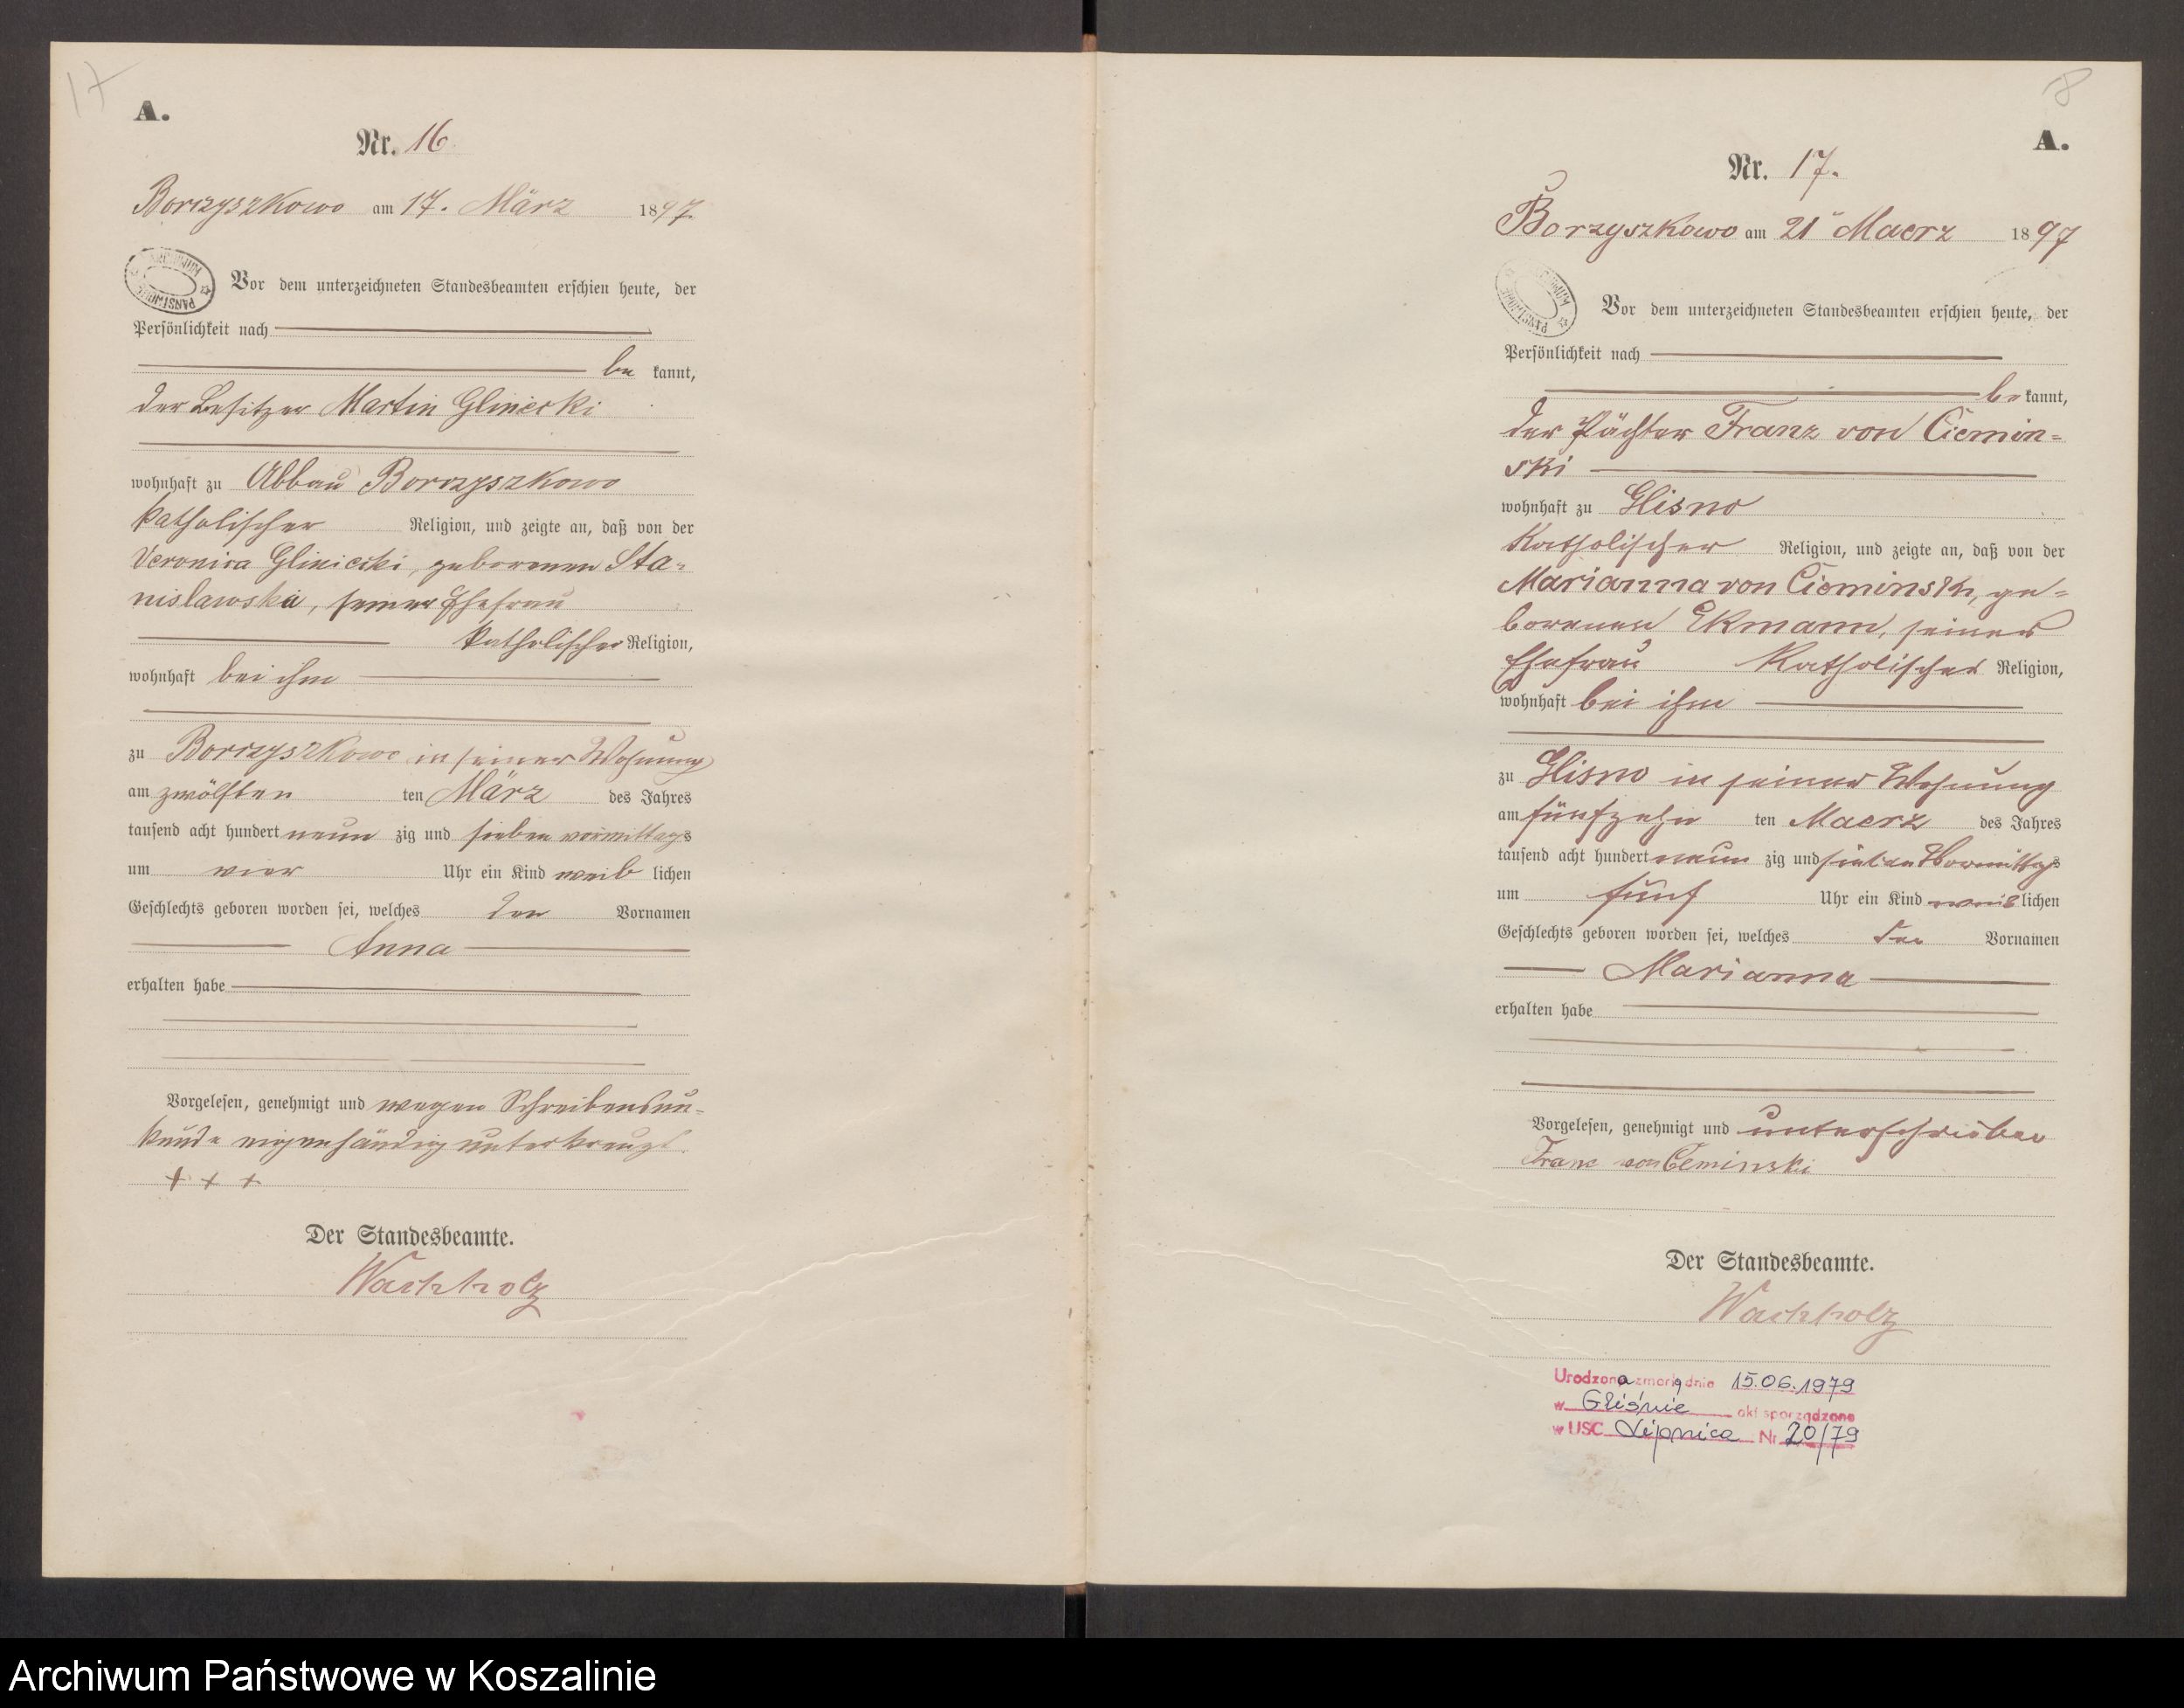 17
A.
Nr. 16
Borzyszkowo am 17. März 1897.
Vor dem unterzeichneten Standesbeamten erschien heute, der
Persönlichkeit nach
be kannt,
der Besitzer Martin Gliniecki
wohnhaft zu Abbau Borzyszkowo
katholischer Religion, und zeigte an, daß von der
Veronica Gliniecki, geborenen Sta-
nislawska, seiner Ehefrau
katholischer Religion,
wohnhaft bei ihm
zu Borzyszkowo in seiner Wohnung
am zwölften ten März des Jahres
tausend acht hundert neun zig und sieben vormittags
um vier Uhr ein Kind weib lichen
Geschlechts geboren worden sei, welches den Vornamen
Anna
erhalten habe
Vorgelesen, genehmigt und wegen Schreibensun-
kunde eigenhändig unterkreuzt.
+ + +
Der Standesbeamte.
Wachholz
8
A.
Nr. 17.
Borzyszkowo am 21 Maerz 1897
Vor dem unterzeichneten Standesbeamten erschien heute, der
Persönlichkeit nach
be kannt,
der Pächter Franz von Ciemin=
ski
wohnhaft zu Glisno
Katholischer Religion, und zeigte an, daß von der
Marianna von Cieminski, ge=
borenen Ekmann, seiner
Ehefrau Katholischer Religion,
wohnhaft bei ihm
zu Glisno in seiner Wohnung
am fünfzehn ten Maerz des Jahres
tausend acht hundert neun zig und sieben Vormittags
um fünf Uhr ein Kind weib lichen
Geschlechts geboren worden sei, welches den Vornamen
Marianna
erhalten habe
Vorgelesen, genehmigt und unterschrieben
Franz von Cieminski
Der Standesbeamte.
Wachholz
Urodzona zmarła dnia 15.06.1979
w Gliśnie akt sporządzono
w USC Lipnica Nr 20/79
Archiwum Państwowe w Koszalinie